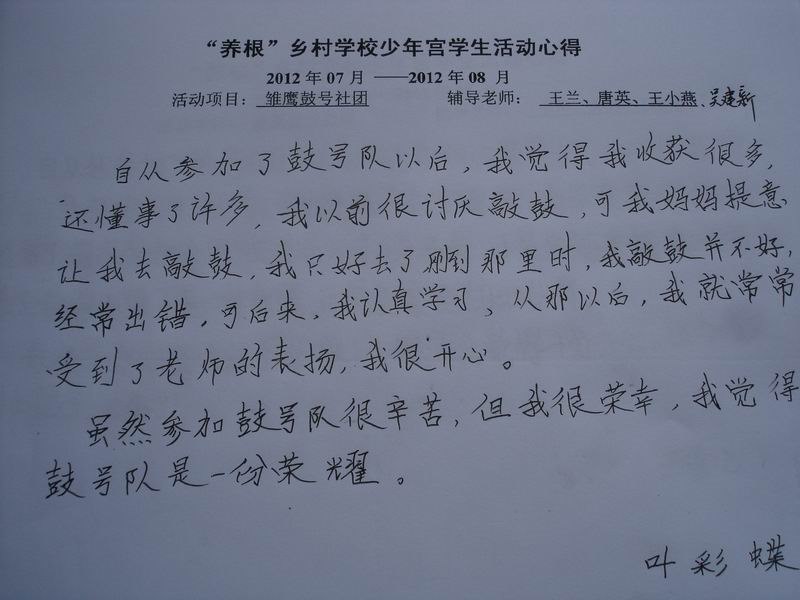 “养根”乡村学校少年宫学生活动心得
2012 年 07 月 ——2012 年 08 月
活动项目： 雏鹰鼓号社团 辅导老师： 王兰、唐英、王小燕、吴建新
自从参加了鼓号队以后，我觉得我收获很多，
还懂事了许多，我以前很讨厌敲鼓，可我妈妈提意
让我去敲鼓，我只好去了刚到那里时，我敲鼓并不好，
经常出错，可后来，我认真学习、从那以后，我就常常
受到了老师的表扬，我很开心。
虽然参加鼓号队很辛苦，但我很荣幸，我觉得
鼓号队是一份荣耀。
叶彩蝶